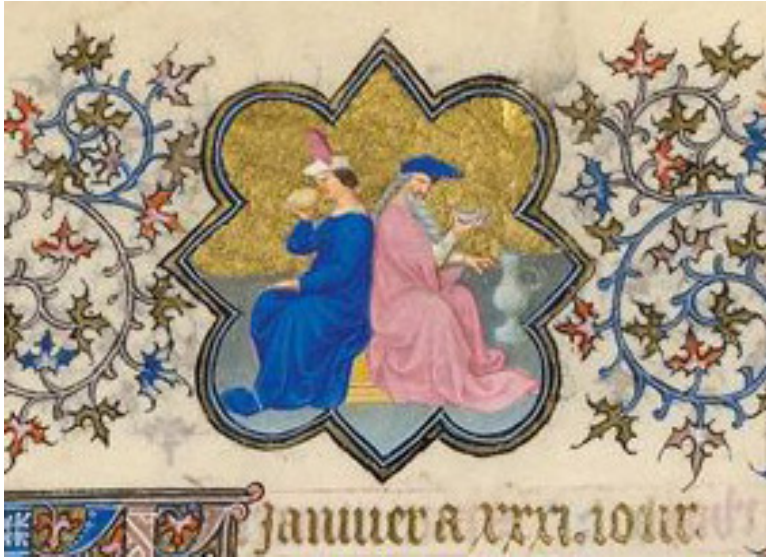 Januier a .xxxi. iour.